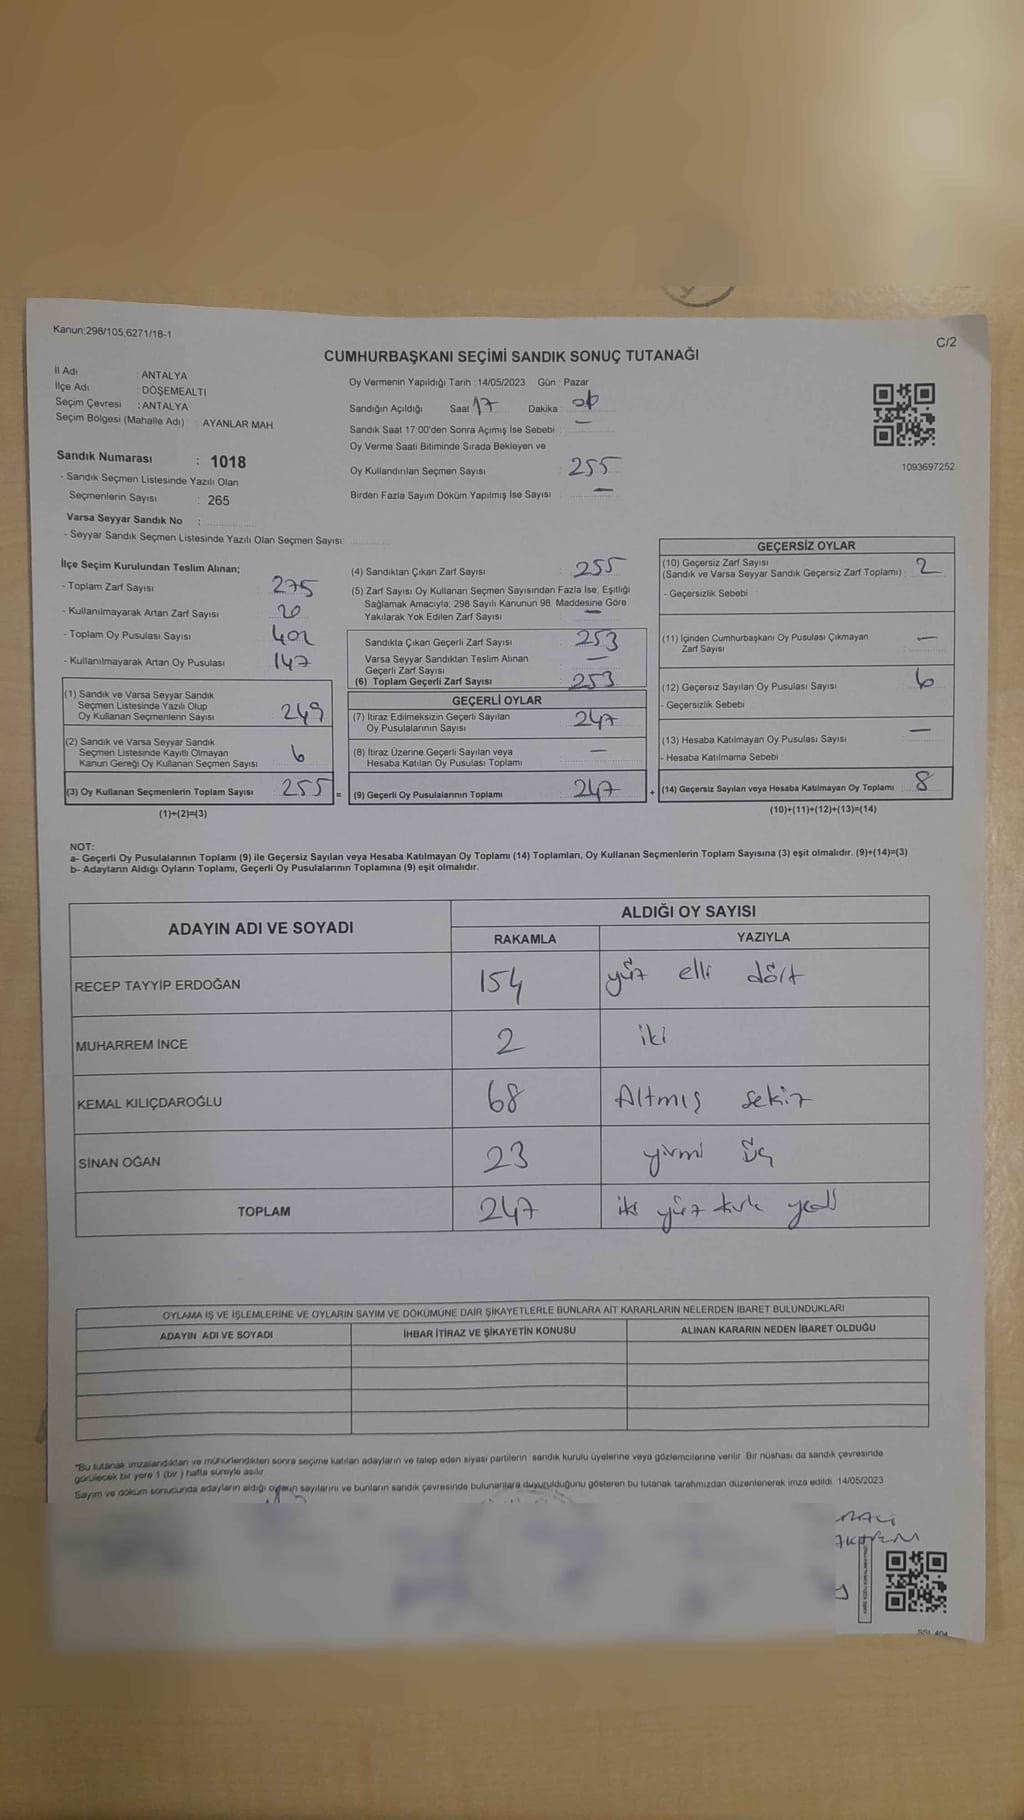 Kanun;298/105,6271/18-1
C/2
CUMHURBAŞKANI SEÇİMİ SANDIK SONUÇ TUTANAĞI
İl Adı : ANTALYA
İlçe Adı : DÖŞEMEALTI
Seçim Çevresi : ANTALYA
Seçim Bölgesi (Mahalle Adı) : AYANLAR MAH
Sandık Numarası : 1018
- Sandık Seçmen Listesinde Yazılı Olan
Seçmenlerin Sayısı : 265
Varsa Seyyar Sandık No :
- Seyyar Sandık Seçmen Listesinde Yazılı Olan Seçmen Sayısı:
Oy Vermenin Yapıldığı Tarih :14/05/2023 Gün : Pazar
Sandığın Açıldığı Saat 17 Dakika
Sandık Saat 17:00'den Sonra Açımış İse Sebebi : —
Oy Verme Saati Bitiminde Sırada Bekleyen ve
Oy Kullandırılan Seçmen Sayısı 255
Birden Fazla Sayım Döküm Yapılmış İse Sayısı —
1093697252
İlçe Seçim Kurulundan Teslim Alınan;
- Toplam Zarf Sayısı 275
- Kullanılmayarak Artan Zarf Sayısı : 20
- Toplam Oy Pusulası Sayısı 402
- Kullanılmayarak Artan Oy Pusulası 147
(1) Sandık ve Varsa Seyyar Sandık
Seçmen Listesinde Yazılı Olup
Oy Kullanan Seçmenlerin Sayısı 249
(2) Sandık ve Varsa Seyyar Sandık
Seçmen Listesinde Kayıtlı Olmayan
Kanun Gereği Oy Kullanan Seçmen Sayısı 6
(3) Oy Kullanan Seçmenlerin Toplam Sayısı 255 =
(1)+(2)=(3)
(4) Sandıktan Çıkan Zarf Sayısı : 255
(5) Zarf Sayısı Oy Kullanan Seçmen Sayısından Fazla İse, Eşitliği
Sağlamak Amacıyla, 298 Sayılı Kanunun 98. Maddesine Göre
Yakılarak Yok Edilen Zarf Sayısı : —
Sandıkta Çıkan Geçerli Zarf Sayısı : 253
Varsa Seyyar Sandıktan Teslim Alınan
Geçerli Zarf Sayısı : —
(6) Toplam Geçerli Zarf Sayısı : 253
GEÇERLİ OYLAR
(7) İtiraz Edilmeksizin Geçerli Sayılan
Oy Pusulalarının Sayısı : 247
(8) İtiraz Üzerine Geçerli Sayılan veya
Hesaba Katılan Oy Pusulası Toplamı : —
(9) Geçerli Oy Pusulalarının Toplamı : 247 +
GEÇERSİZ OYLAR
(10) Geçersiz Zarf Sayısı
(Sandık ve Varsa Seyyar Sandık Geçersiz Zarf Toplamı) : 2
- Geçersizlik Sebebi :
(11) İçinden Cumhurbaşkanı Oy Pusulası Çıkmayan
Zarf Sayısı : —
(12) Geçersiz Sayılan Oy Pusulası Sayısı : 6
- Geçersizlik Sebebi
(13) Hesaba Katılmayan Oy Pusulası Sayısı : —
- Hesaba Katılmama Sebebi :
(14) Geçersiz Sayılan veya Hesaba Katılmayan Oy Toplamı : 8
(10)+(11)+(12)+(13)=(14)
NOT:
a- Geçerli Oy Pusulalarının Toplamı (9) ile Geçersiz Sayılan veya Hesaba Katılmayan Oy Toplamı (14) Toplamları, Oy Kullanan Seçmenlerin Toplam Sayısına (3) eşit olmalıdır. (9)+(14)=(3)
b- Adayların Aldığı Oyların Toplamı, Geçerli Oy Pusulalarının Toplamına (9) eşit olmalıdır.
ADAYIN ADI VE SOYADI ALDIĞI OY SAYISI
RAKAMLA YAZIYLA
RECEP TAYYİP ERDOĞAN 154 yüz elli dört
MUHARREM İNCE 2 iki
KEMAL KILIÇDAROĞLU 68 Altmış sekiz
SİNAN OĞAN 23 yirmi üç
TOPLAM 247 iki yüz kırk yedi
OYLAMA İŞ VE İŞLEMLERİNE VE OYLARIN SAYIM VE DÖKÜMÜNE DAİR ŞİKAYETLERLE BUNLARA AİT KARARLARIN NELERDEN İBARET BULUNDUKLARI
ADAYIN ADI VE SOYADI İHBAR İTİRAZ VE ŞİKAYETİN KONUSU ALINAN KARARIN NEDEN İBARET OLDUĞU
*Bu tutanak imzalandıktan ve mühürlendikten sonra seçime katılan adayların ve talep eden siyasi partilerin sandık kurulu üyelerine veya gözlemcilerine verilir. Bir nüshası da sandık çevresinde
görülecek bir yere 1 (bir ) hafta süreyle asılır
Sayım ve döküm sonucunda adayların aldığı oyların sayılarını ve bunların sandık çevresinde bulunanlara duyurulduğunu gösteren bu tutanak tarafımızdan düzenlenerek imza edildi. 14/05/2023